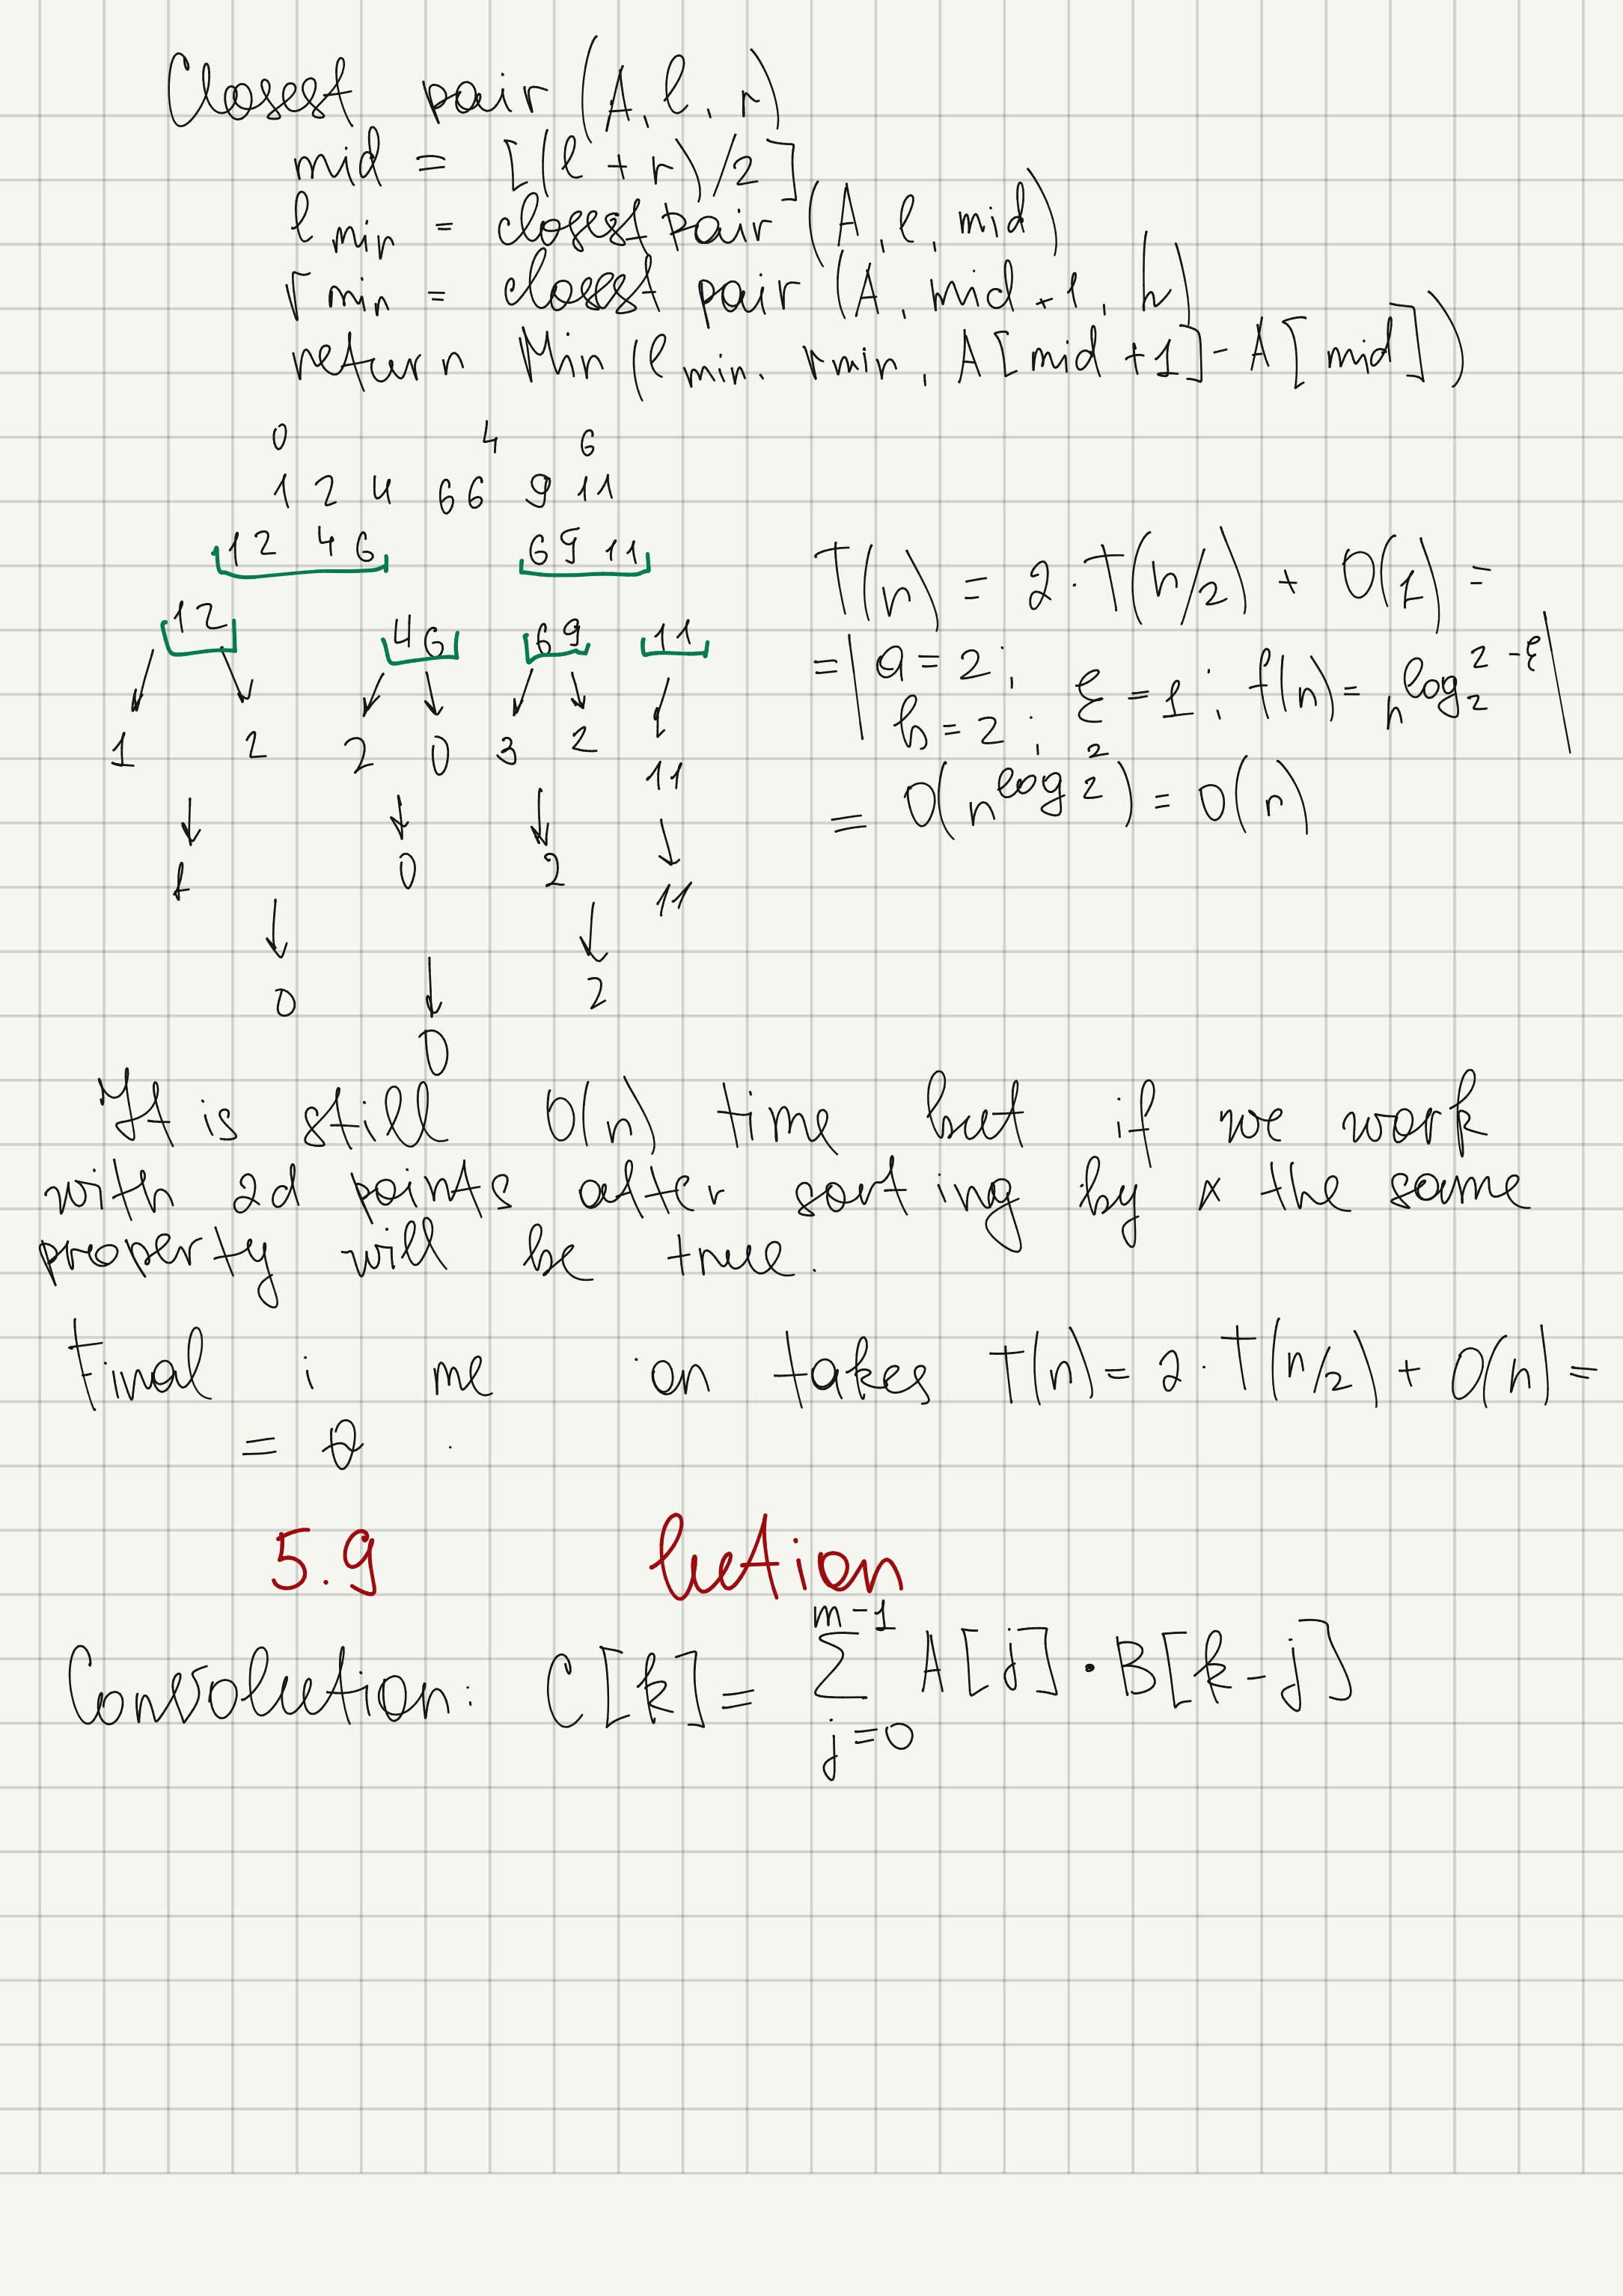 Closest pair (A, l, r)
mid = [(l + r)/2]
l min = closest pair (A, l, mid)
r min = closest pair (A, mid + 1, h)
return Min (l min, rmin, A[mid +1] - A[mid])
0 4 6
1 2 4 6 6 9 11
1 2 4 6 6 9 11
T(n) = 2 · T(n/2) + O(1) =
1 2 4 6 6 9 11
= | a = 2; ε = 1; f(n) = n^log_2 2 - ε |
b = 2;
1 2 2 0 3 2 11
= O(n^log_2 2) = O(n)
1 0 2 11
0 2
0
It is still O(n) time but if we work
with 2d points after sorting by x the same
property will be true.
Final i me on takes T(n) = 2 · T(n/2) + O(n) =
= θ
5.9 lution
Convolution: C[k] = ∑_{j=0}^{m-1} A[j] · B[k-j]